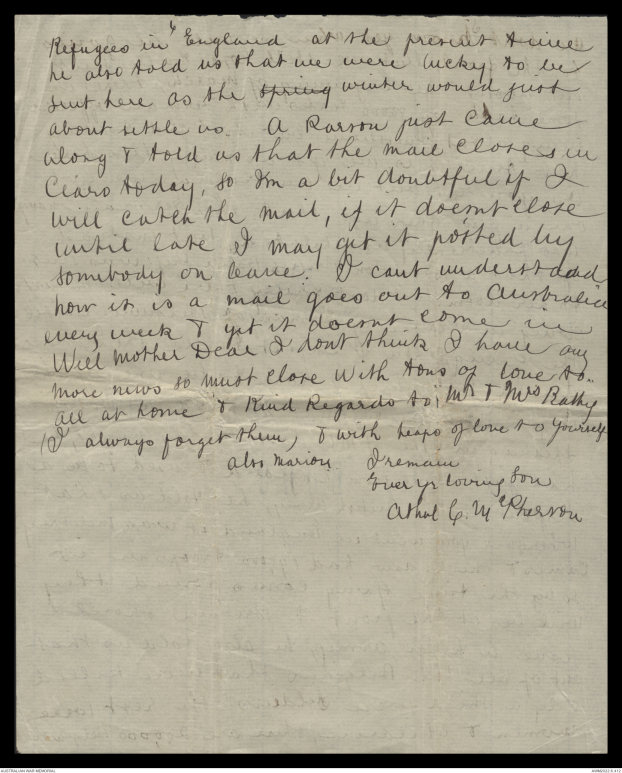 Refugees in England at the present time
he also told us that we were lucky to be
sent here as the spring winter would just
about settle us. A Parson just came
along & told us that the mail closes in
Ciaro today, so Im a bit doubtful if I
will catch the mail, if it doesnt close
until late I may get it posted by
somebody on leave. I cant understand
how it is a mail goes out to Australia
every week & yet it doesnt come in
Well Mother Dear I dont think I have any
more news so must close with tons of love to
all at home & Kind Regards to Mr & Mrs Bathy
(I always forget them, & with heaps of love to yourself
also Marion I remain
Ever yr loving Son
Athol C. McPherson
AUSTRALIAN WAR MEMORIAL